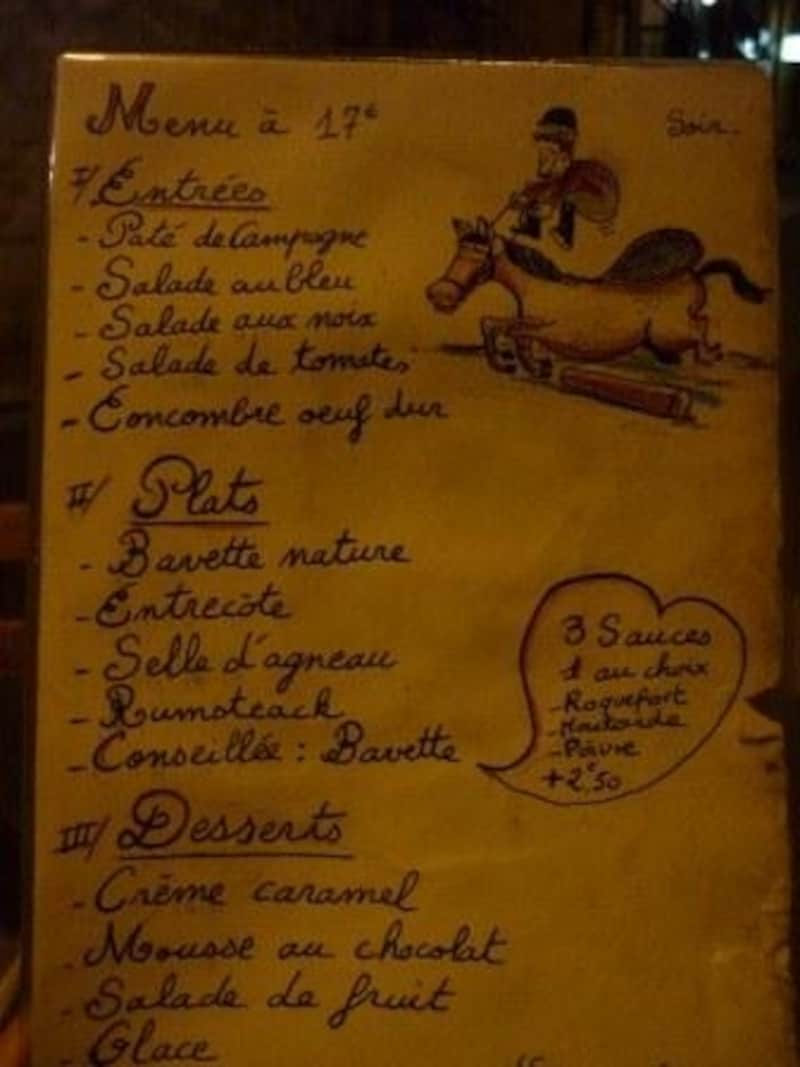 Menu à 17€
Soir.
I/ Entrées
- Paté de Campagne
- Salade au bleu
- Salade aux noix
- Salade de tomates
- Concombre oeuf dur
II/ Plats
- Bavette nature
- Entrecôte
- Selle d'agneau
- Rumsteack
- Conseillée : Bavette
3 Sauces
1 au choix
- Roquefort
- Moutarde
- Poivre
+2€50
III/ Desserts
- Crème caramel
- Mousse au chocolat
- Salade de fruit
- Glace